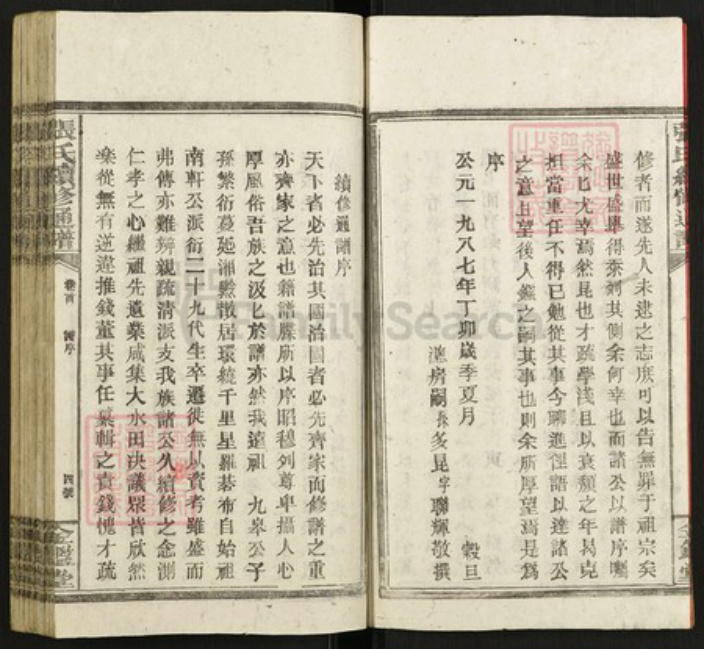 修者而遂先人未逮之志庶可以告無罪于祖宗矣
盛世盛舉得忝列其側余何幸也而諸公以譜序囑
余匕尤幸焉然昆也才疏學淺且以衰頹之年曷克
担當重任不得已勉從其事今聊進俚語以達諸公
之意且望後人鑑之嗣其事也則余所厚望焉是爲
序
公元一九八七年丁卯歲季夏月 穀旦
房嗣長多昆字聯輝敬撰
張氏續修通譜
續修通譜序
天下者必先治其國治國者必先齊家而修譜之重
亦齊家之意也籍譜牒所以序昭穆列尊卑攝人心
厚風俗吾族之汲匕於譜亦然我遠祖 九皋公子
孫繁衍蔓延湘黔散居環繞千里星羅碁布自始祖
南軒公派衍二十九代生卒遷徙無以資考雖盛而
弗傳亦難辨親疏清派支我族諸公久續修之念測
仁孝之心繼祖先遺業咸集大水田决議眾皆欣然
樂從無有逆違推錢董其事任纂輯之責錢愧才疏
張氏續修通譜
卷首
譜序
四號
金鑑堂
金鑑堂
FamilySearch